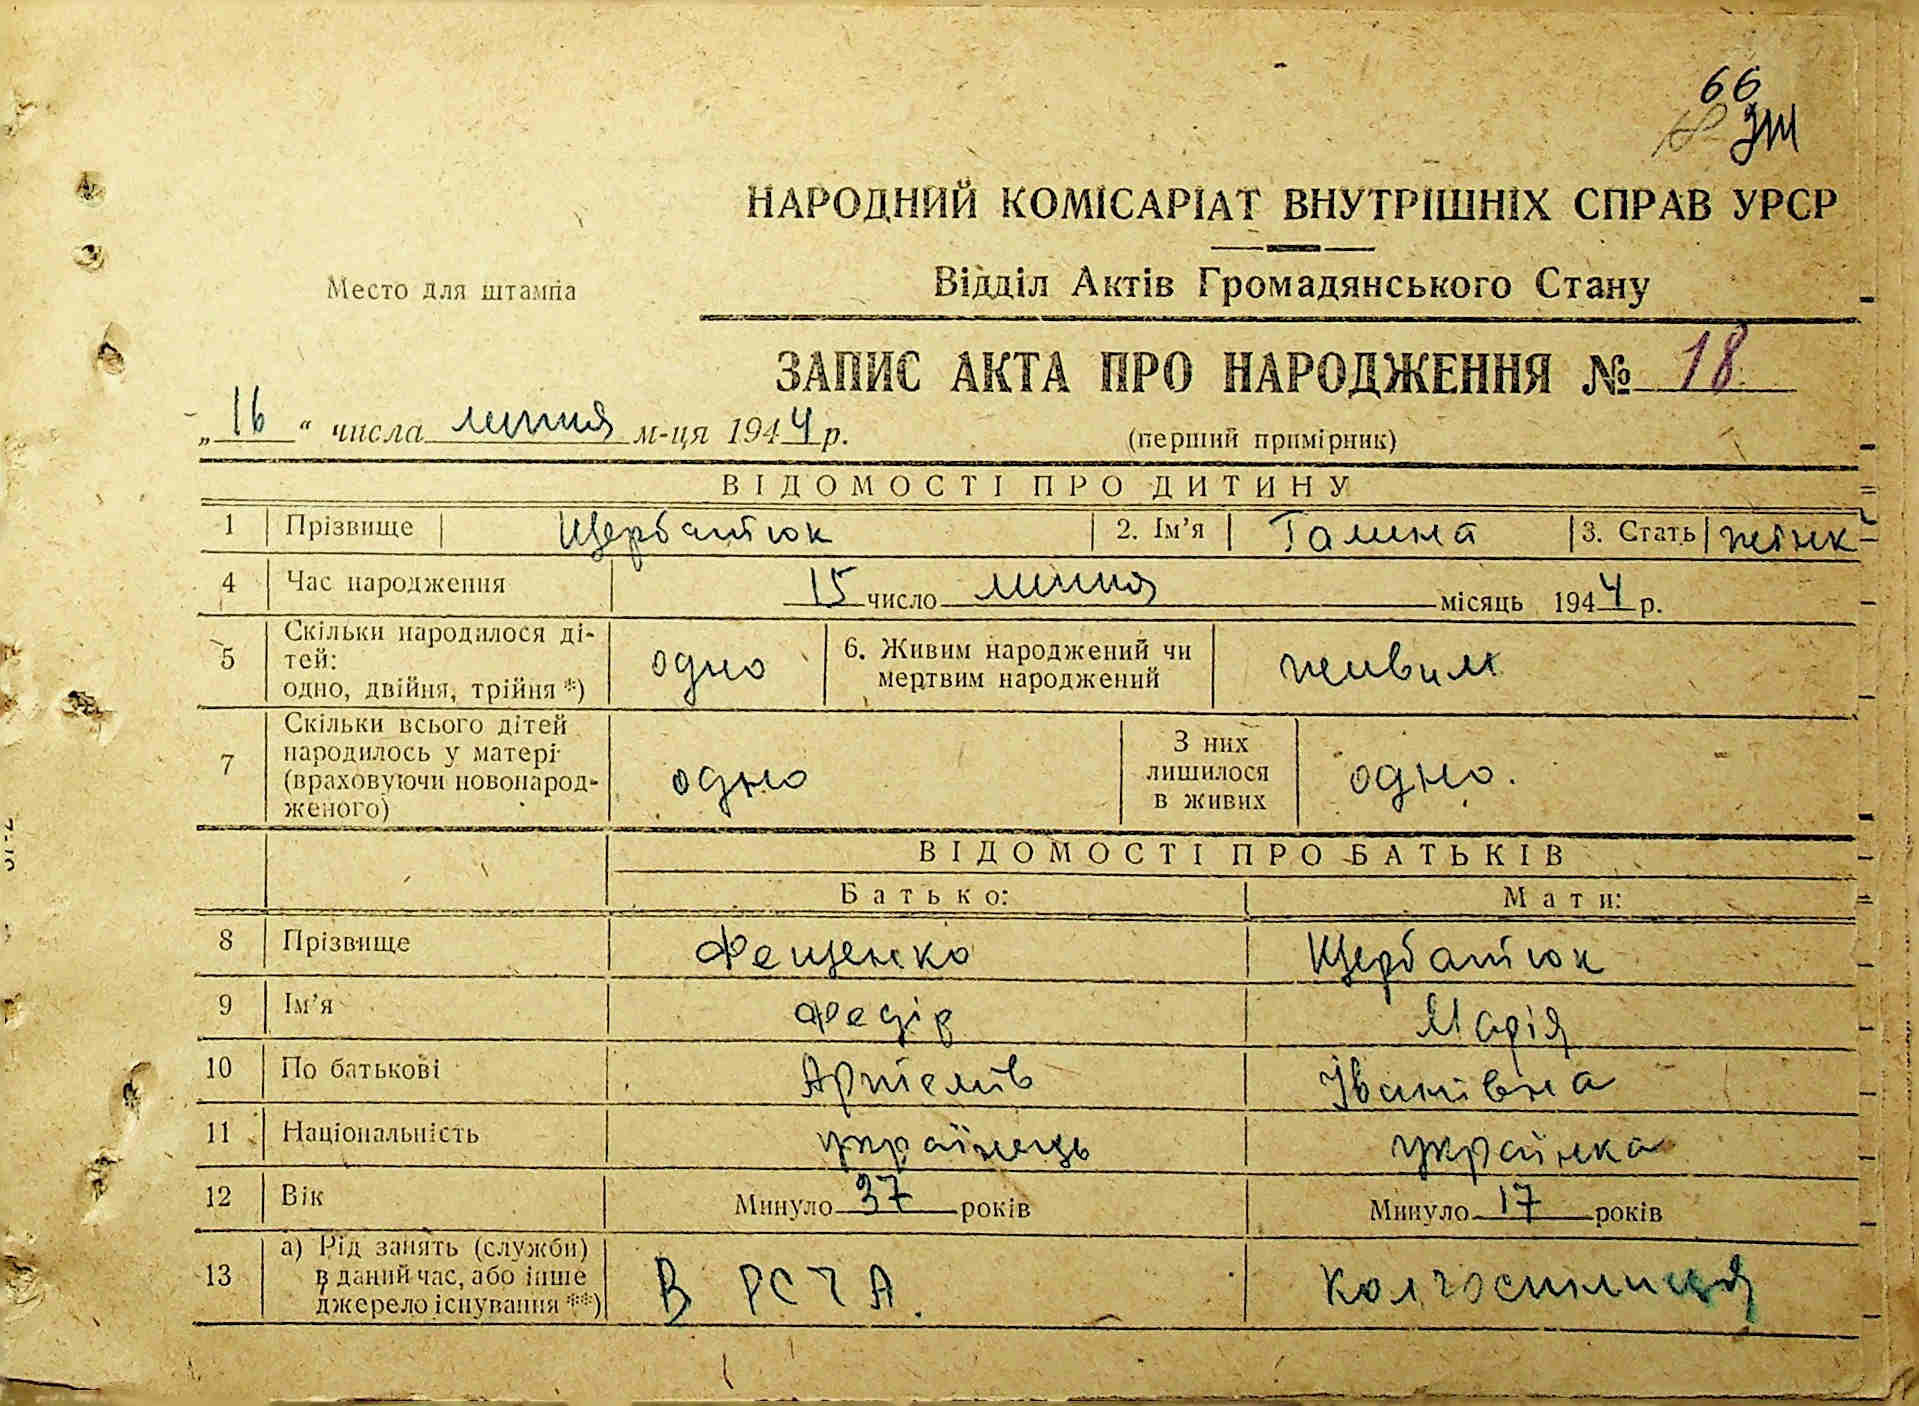 66
НАРОДНИЙ КОМІСАРІАТ ВНУТРІШНІХ СПРАВ УРСР
Место для штампа
Відділ Актів Громадянського Стану
ЗАПИС АКТА ПРО НАРОДЖЕННЯ № 18
„16“ числа липня м-ця 1944 р.
(перший примірник)
ВІДОМОСТІ ПРО ДИТИНУ
1 Прізвище Щербатюк 2. Ім'я Галина 3. Стать жінк
4 Час народження 15 число липня місяць 1944 р.
5 Скільки народилося ді-
тей:
одно, двійня, трійня *) одно 6. Живим народжений чи
мертвим народжений живим
7 Скільки всього дітей
народилось у матері
(враховуючи новонарод-
женого) одно З них
лишилося
в живих одно.
ВІДОМОСТІ ПРО БАТЬКІВ
Батько: Мати:
8 Прізвище Фещенко Щербатюк
9 Ім'я Федір Марія
10 По батькові Артемів Іванівна
11 Національність українець українка
12 Вік Минуло 37 років Минуло 17 років
13 а) Рід занять (служби)
в даний час, або інше
джерело існування **) В РСЧА. Колгоспниця